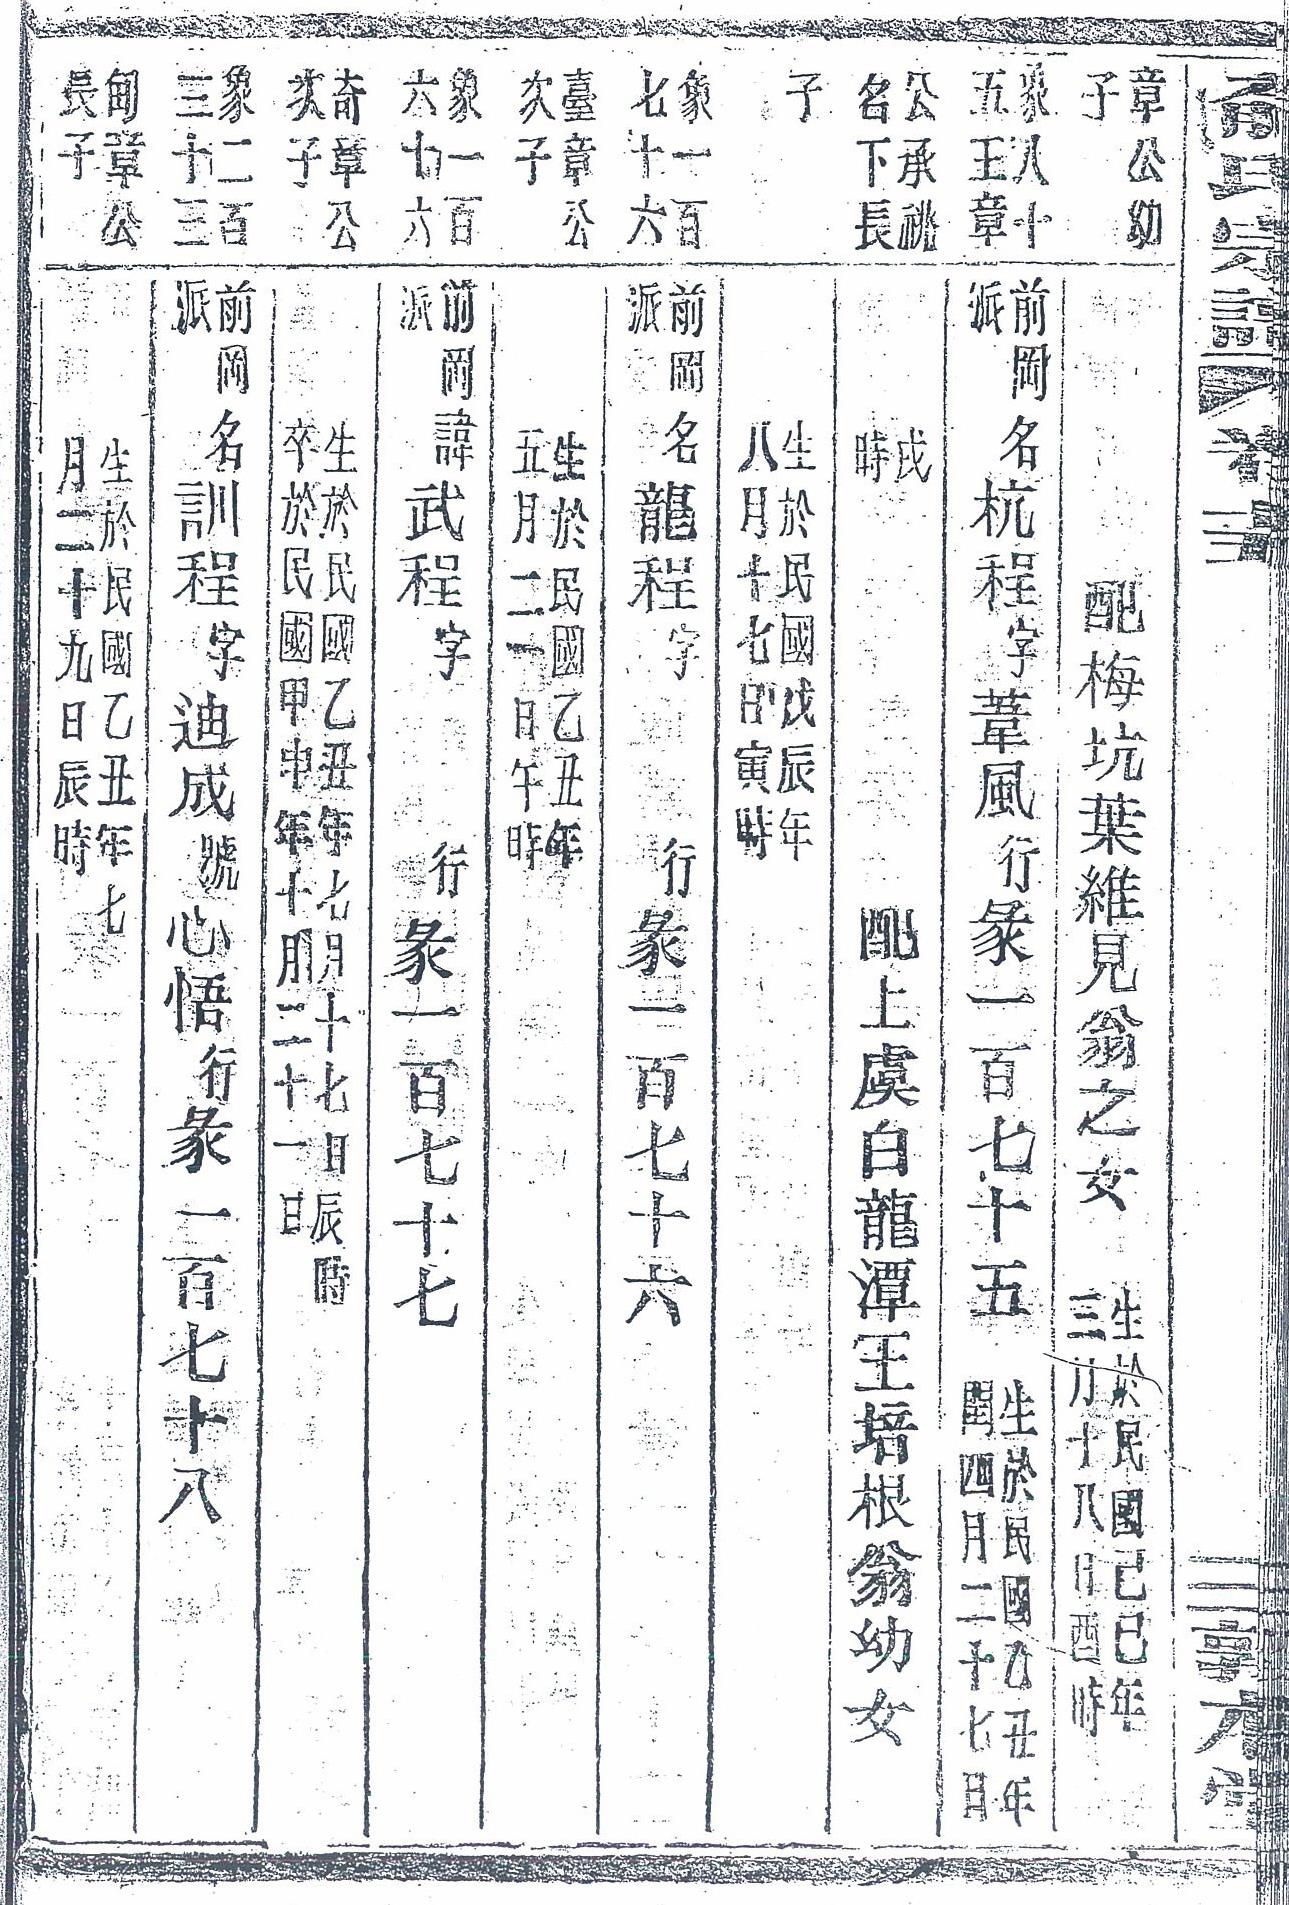 氏宗譜
卷三
章公幼
子
配梅坑葉維見翁之女
生於民國己巳年
三月十八日酉時
象八十
五王章
前岡
派
名杭程字葦風行彖一百七十五
生於民國乙丑年
閏四月二十七日
公承祧
名下長
戌
時
配上虞白龍潭王培根翁幼女
子
生於民國戊辰年
八月十七日寅時
象一百
七十六
前岡
派
名龍程字 行彖一百七十六
臺章公
次子
生於民國乙丑年
五月二一日午時
象一百
六十六
前岡
派
諱武程字 行彖一百七十七
奇章公
次子
生於民國乙丑年七月十七日辰時
卒於民國甲申年十月二十一日
象二百
三十三
前岡
派
名訓程字迪成號心悟行彖一百七十八
甸章公
長子
生於民國乙丑年七
月二十九日辰時